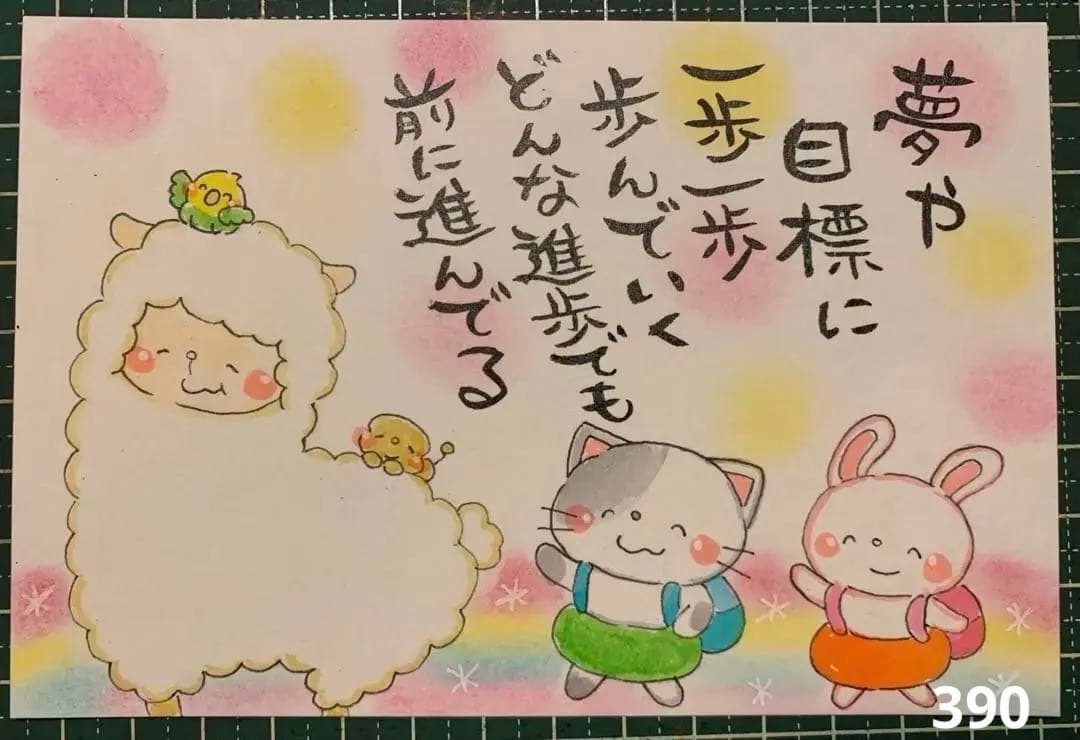 夢や
目標に
一歩一歩
歩んでいく
どんな進歩でも
前に進んでる
390